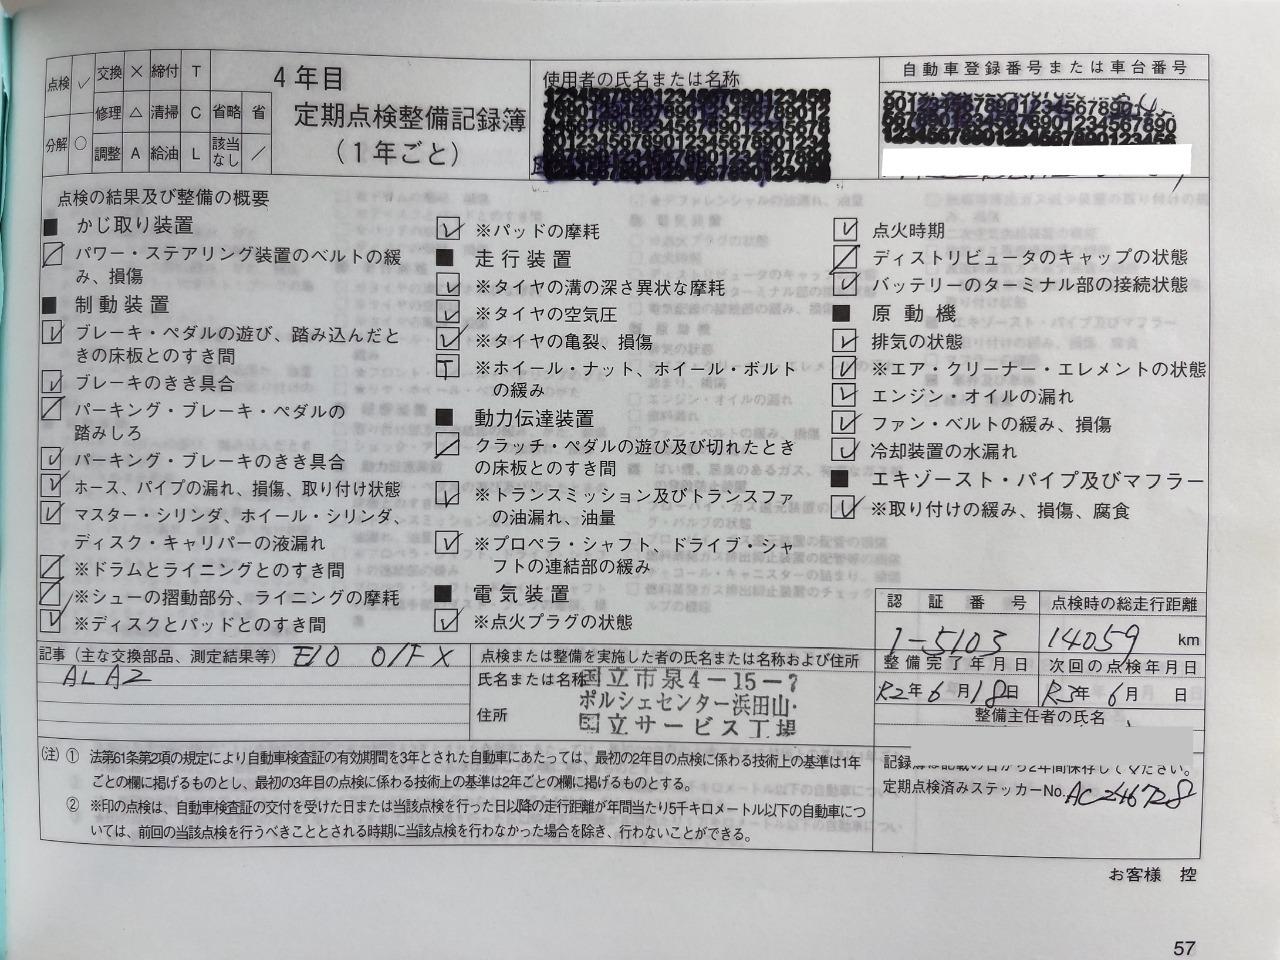 点検 ✓ 交換 × 締付 T
修理 △ 清掃 C 省略 省
分解 ○ 調整 A 給油 L 該当なし ／
4年目
定期点検整備記録簿
(1年ごと)
使用者の氏名または名称
自動車登録番号または車台番号
点検の結果及び整備の概要
■ かじ取り装置
パワー・ステアリング装置のベルトの緩
み、損傷
■ 制動装置
ブレーキ・ペダルの遊び、踏み込んだと
きの床板とのすき間
ブレーキのきき具合
パーキング・ブレーキ・ペダルの
踏みしろ
パーキング・ブレーキのきき具合
ホース、パイプの漏れ、損傷、取り付け状態
マスター・シリンダ、ホイール・シリンダ、
ディスク・キャリパーの液漏れ
※ドラムとライニングとのすき間
※シューの摺動部分、ライニングの摩耗
※ディスクとパッドとのすき間
※パッドの摩耗
■ 走行装置
※タイヤの溝の深さ異状な摩耗
※タイヤの空気圧
※タイヤの亀裂、損傷
T ※ホイール・ナット、ホイール・ボルト
の緩み
■ 動力伝達装置
クラッチ・ペダルの遊び及び切れたとき
の床板とのすき間
※トランスミッション及びトランスファ
の油漏れ、油量
※プロペラ・シャフト、ドライブ・シャ
フトの連結部の緩み
■ 電気装置
※点火プラグの状態
点火時期
ディストリビュータのキャップの状態
バッテリーのターミナル部の接続状態
■ 原動機
排気の状態
※エア・クリーナー・エレメントの状態
エンジン・オイルの漏れ
ファン・ベルトの緩み、損傷
冷却装置の水漏れ
■ エキゾースト・パイプ及びマフラー
※取り付けの緩み、損傷、腐食
認証番号 点検時の総走行距離
1-5103 14059 km
整備完了年月日 次回の点検年月日
R2年6月18日 R3年6月 日
整備主任者の氏名
記事（主な交換部品、測定結果等） E10 O/F X
ALA2
点検または整備を実施した者の氏名または名称および住所
氏名または名称
住所
国立市泉4-15-7
ポルシェセンター浜田山・
国立サービス工場
記録簿は記載の日から2年間保存してください。
定期点検済みステッカーNo.AC246728
(注) ① 法第61条第2項の規定により自動車検査証の有効期間を3年とされた自動車にあたっては、最初の2年目の点検に係わる技術上の基準は1年
ごとの欄に掲げるものとし、最初の3年目の点検に係わる技術上の基準は2年ごとの欄に掲げるものとする。
② ※印の点検は、自動車検査証の交付を受けた日または当該点検を行った日以降の走行距離が年間当り5千キロメートル以下の自動車につ
いては、前回の当該点検を行うべきこととされる時期に当該点検を行わなかった場合を除き、行わないことができる。
お客様 控
57